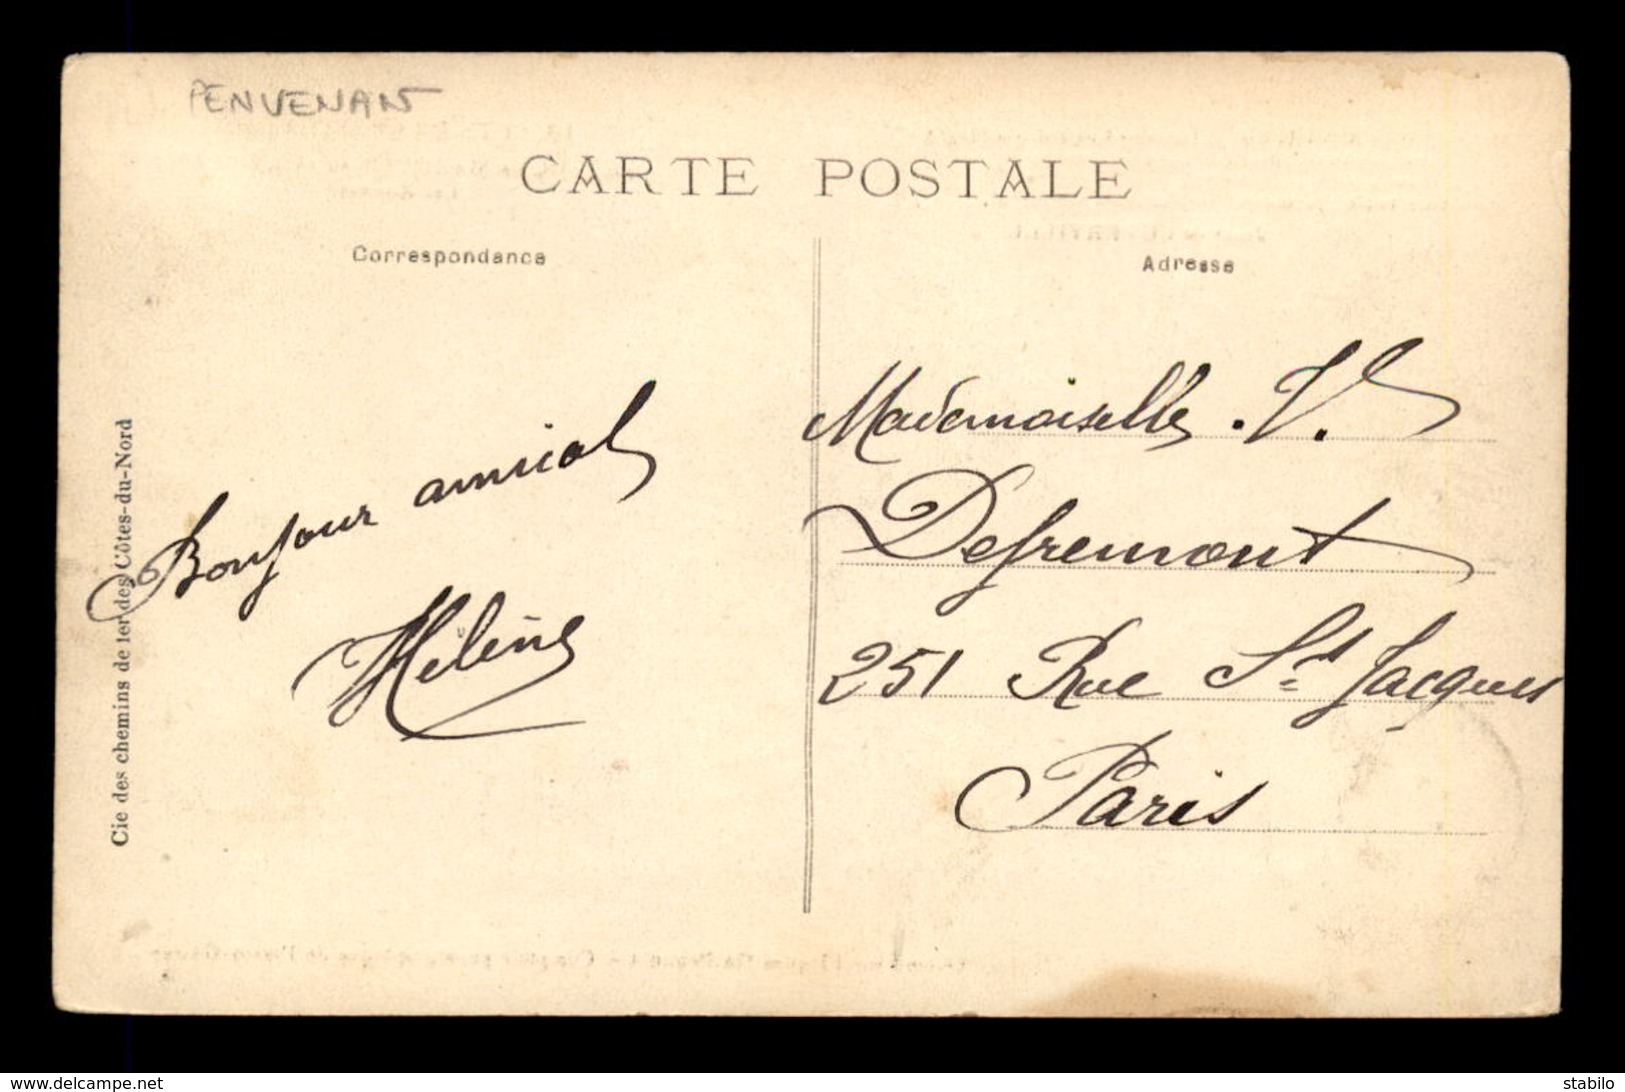 PENVENAN
CARTE POSTALE
Correspondance
Adresse
Cie des chemins de fer des Côtes-du-Nord
Bonjour amical
Hélène
Mademoiselle V.
Defremont
251 Rue St Jacques
Paris
www.delcampe.net
stabilo